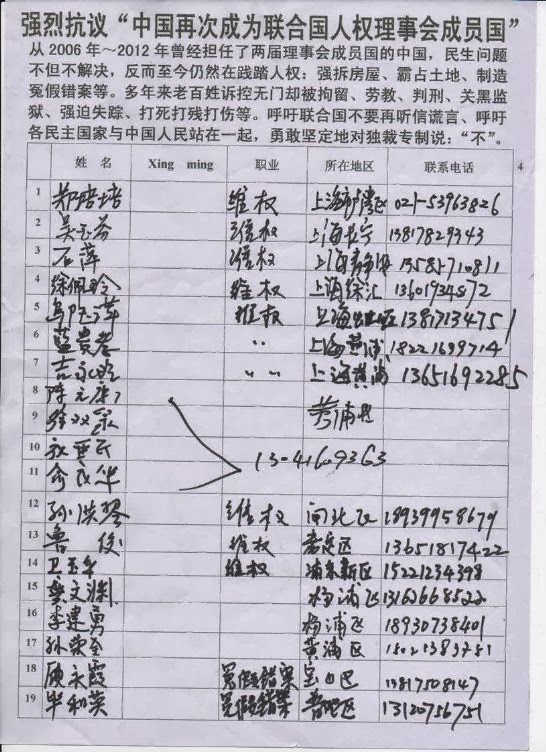 强烈抗议“中国再次成为联合国人权理事会成员国”
从 2006 年～2012 年曾经担任了两届理事会成员国的中国，民生问题
不但不解决，反而至今仍然在践踏人权：强拆房屋、霸占土地、制造
冤假错案等。多年来老百姓诉控无门却被拘留、劳教、判刑、关黑监
狱、强迫失踪、打死打残打伤等。呼吁联合国不要再听信谎言、呼吁
各民主国家与中国人民站在一起，勇敢坚定地对独裁专制说：“不”。
姓 名 Xing ming 职业 所在地区 联系电话 4
1 郑培培 维权 上海市卢湾区 021-53963826
2 吴玉芬 维权 上海长宁 13817829343
3 石萍 维权 上海静安 13585710811
4 徐佩玲 维权 上海徐汇 13601934872
5 维权 上海 13817134751
6 蓝贵孝 〃 上海黄浦 18221699714
7 〃 〃 上海黄浦 13651692285
8 陈元康
9 徐双泉 黄浦区
10
11 俞茂华 13041609363
12 孙洪琴 维权 闸北区 18939958679
13 鲁俊 维权 嘉定区 13651817422
14 卫玉 维权 浦东新区 15221234398
15 龚文渊 杨浦区 13162668522
16 李建勇 杨浦区 18930738401
17 孙荣全 黄浦区 15021383751
18 顾永霞 冤假错案 宝山区 13817508147
19 毕和英 冤假错案 普陀区 13120756751